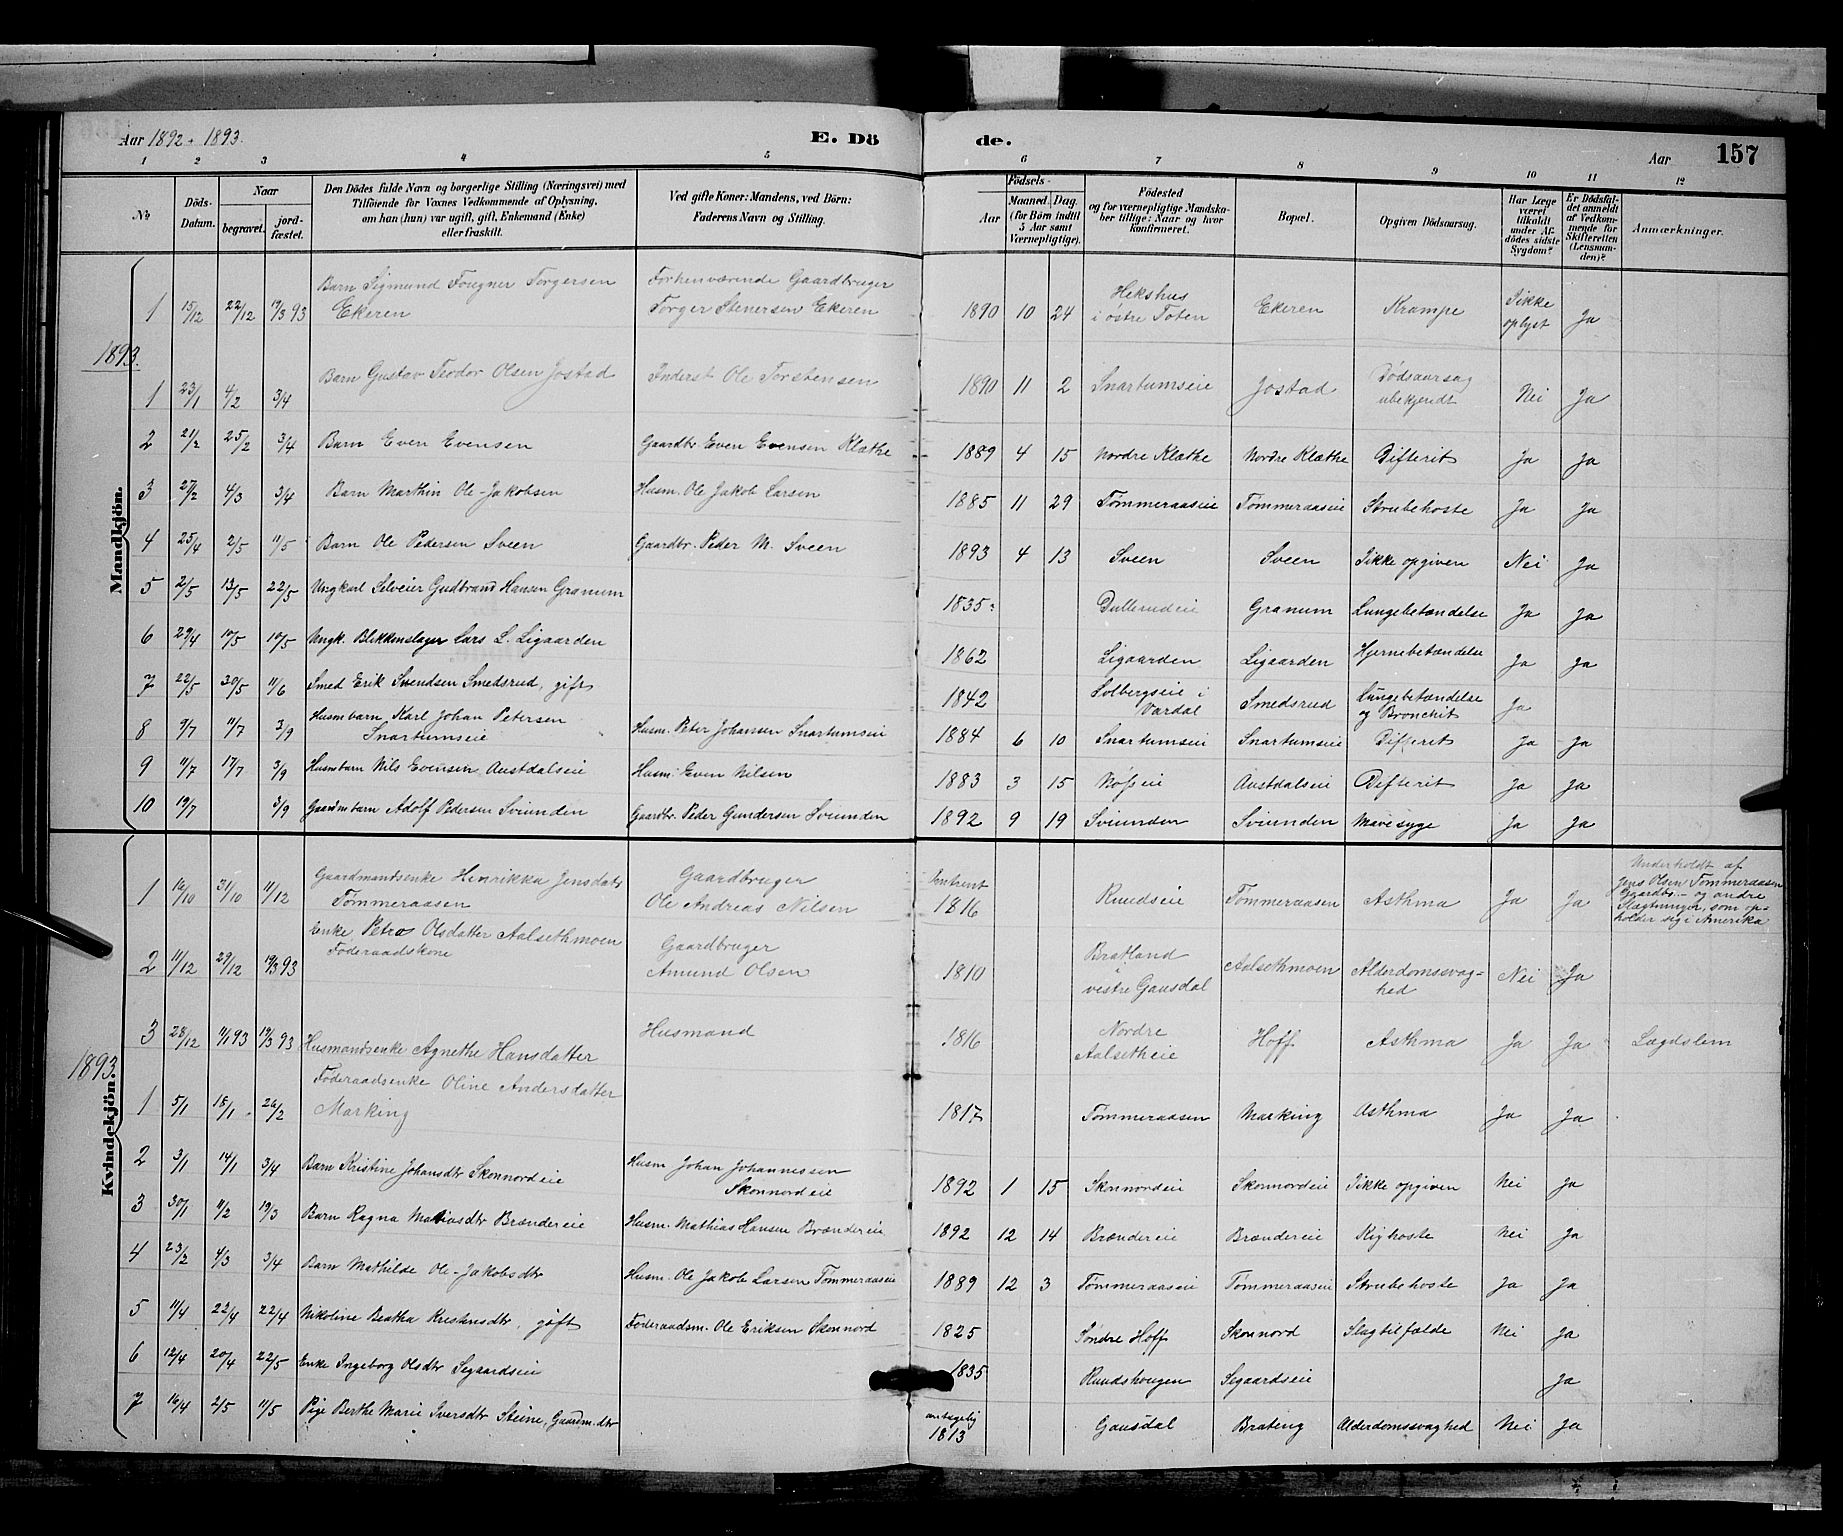 Aar 1892 - 1893. E. Dö de. Aar 157
1 2 3 4 5 6 7 8 9 10 11 12
No
Döds-Datum.
Naar
begravet. jord-fæstet.
Den Dödes fulde Navn og borgerlige Stilling (Næringsvei) med
Tilföiende for Voxnes Vedkommende af Oplysning,
om han (hun) var ugift, gift, Enkemand (Enke)
eller fraskilt.
Ved gifte Koner: Mandens, ved Börn:
Faderens Navn og Stilling.
Födsels-
Aar Maaned. Dag.
(for Börn indtil
5 Aar samt
Værnepligtige).
Födested
og for værnepligtige Mandska-
ber tillige: Naar og hvor
konfirmeret.
Bopæl.
Opgiven Dödsaarsag.
Har Læge
været
tilkaldt
under Af-
dödes sidste
Sygdom?
Er Dödsfal-
det anmeldt
af Vedkom-
mende for
Skifteretten
(Lensman-
den)?
Anmærkninger.
Mandkjön.
1 15/12 22/12 19/3 93 Barn Sigmund Fougner Torgersen Ekeren Forhenværende Gaardbruger Torger Stenersen Ekeren 1890 10 24 Hekshus i østre Toten Ekeren Krampe Ikke oplyst Ja
1893.
1 23/1 4/2 3/4 Barn Gustav Teodor Olsen Jostad Inderst Ole Torstensen 1890 11 2 Snartumseie Jostad Dødsaarsag ubekjendt Nei Ja
2 21/2 25/2 3/4 Barn Even Evensen Gaardbr. Even Evensen Klæthe 1889 4 15 Nordre Klæthe Nordre Klæthe Difterit Ja Ja
3 27/2 4/3 3/4 Barn Marthin Ole-Jakobsen Husm. Ole Jakob Larsen 1885 11 29 Tømmeraaseie Tømmeraaseie Strubehoste Ja Ja
4 25/4 2/5 11/5 Barn Ole Pedersen Sveen Gaardbr. Peder M. Sveen 1893 4 13 Sveen Sveen Ikke opgiven Nei Ja
5 2/5 13/5 22/5 Ungkarl Selveier Gudbrand Hansen Granum 1835 Dullerudeie Granum Lungebetændelse Ja Ja
6 29/4 10/5 10/5 Ungk. Blikkenslager Lars L. Ligaarden 1862 Ligaarden Ligaarden Hjernebetændelse Ja Ja
7 22/5 30/5 11/6 Smed Erik Svendsen Smedsrud, gift 1842 Solbergseie i Vardal Smedsrud Lungebetændelse og Bronchit Ja
8 9/7 11/7 3/9 Husmbarn Karl Johan Petersen Snartumseie Husm. Peter Johansen Snartumseie 1884 6 10 Snartumseie Snartumseie Difterit Ja Ja
9 11/7 17/7 3/9 Husmbarn Nils Evensen Austdalseie Husm. Even Nilsen 1883 3 15 Austdalseie Difterit Ja Ja
10 19/7 3/9 Gaardmbarn Adolf Pedersen Sviunden Gaardbr. Peder Gundersen Sviunden 1892 9 19 Sviunden Sviunden Mavesyge Ja Ja
Kvindekjön.
1 16/10 31/10 11/12 Gaardmandsenke Henrikka Jensdatr Tømmeraasen Gaardbruger Ole Andreas Nilsen Omtrent 1816 Ruudseie Tømmeraasen Asthma Ja Ja Underholdt af Jens Olsen Tømmeraasen Gaardbr. - og andre Slægtninger, som op-holder sig i Amerika
2 11/12 29/12 19/3 93 Enke Petro Olsdatter Aalsethmoen Føderaadskone Gaardbruger Amund Olsen 1810 Bratland i vestre Gausdal Aalsethmoen Alderdomssvag-hed Nei Ja
3 28/12 11/1 93 19/3 93 Husmandsenke Agnethe Hansdatter Husmand 1816 Nordre Aalsetheie Hoff Asthma Ja Ja Lægdslem
1893.
1 5/1 18/1 26/2 Føderaadsenke Oline Andersdatter Marking 1817 Tømmeraasen Marking Asthma Ja Ja
2 3/1 14/1 3/4 Barn Kristine Johansdtr Skonnordeie Husm Johan Johannessen Skonnordeie 1892 1 15 Skonnordeie Skonnordeie Ikke opgiven Nei Ja
3 30/1 11/2 19/3 Barn Ragna Mathiasdtr Brændereie Husm. Mathias Hansen Brændereie 1892 12 14 Brændereie Brændereie Kighoste Nei Ja
4 23/2 4/3 3/4 Barn Mathilde Ole-Jakobsdtr Husm. Ole Jakob Larsen Tømmeraaseie 1889 12 3 Tømmeraaseie Tømmeraaseie Strubehoste Ja Ja
5 11/4 22/4 22/4 Nikoline Beatha Kristensdtr, gift Føderaadsm. Ole Eriksen Skonnord 1825 Søndre Hoff Skonnord Slagtilfælde Nei Ja
6 12/4 20/4 22/5 Enke Ingeborg Olsdtr Segaardseie 1835 Ruudshougen Segaardseie Ja
7 16/4 2/5 11/5 Pige Berthe Marie Iversdtr Steine, Gaardm.dtr antagelig 1813 Gausdal Brateng Alderdomssvaghed Nei Ja